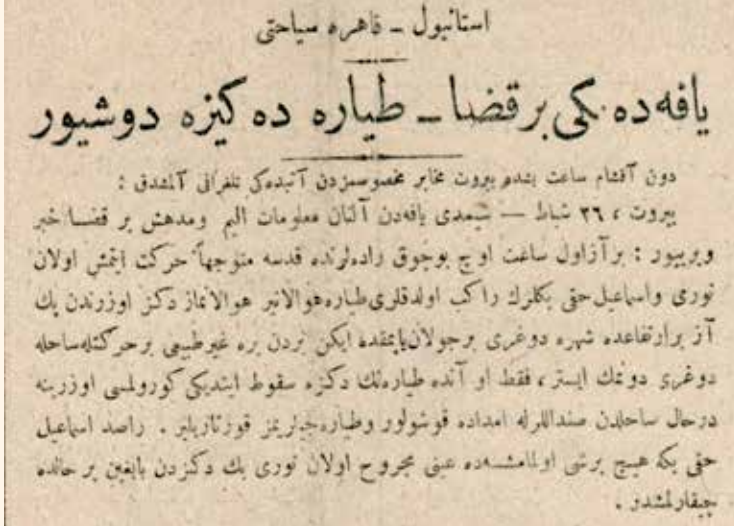 استانبول ــ قاهره سیاحتی
یافه‌ده‌کی بر قضا ــ طیاره ده‌کیزه دوشیور
دون آقشام ساعت بشده بیروت مخابر مخصوصمزدن آتیده‌کی تلغرافی آلمشدق :
بیروت ، ٢٦ شباط — شیمدی یافه‌دن آلنان معلومات الیم ومدهش بر قضا خبر
ویرییور : بر آز اول ساعت اوچ بوچوق راده‌لرنده قدسه متوجهاً حرکت ایتمش اولان
نوری واسماعیل حقی بکلرك راکب اولدقلری طیاره هوالانیر هوالانماز دکز اوزرندن پك
آز بر ارتفاعده شهره دوغری بر جولان یاپمقده ایکن بردن بره غیر طبیعی بر حرکتله ساحله
دوغری دونمك ایستر ، فقط او آنده طیاره‌نك دکزه سقوط ایتدیکی کورولمسی اوزرینه
درحال ساحلدن صندللرله امداده قوشولور وطیاره‌جیلریمز قورتاریلیر . راصد اسماعیل
حقی بکه هیچ برشی اولمامشسه‌ده عینی مجروح اولان نوری بك دکزدن بایغین بر حالده
چیقارلمشدر .